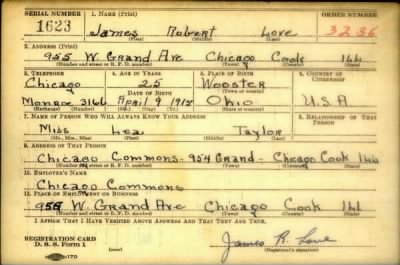 SERIAL NUMBER 1. NAME (Print) ORDER NUMBER
1623 James Robert Love 3236
(First) (Middle) (Last)
2. ADDRESS (Print)
955 W. Grand Ave Chicago Cook Ill
(Number and street or R. F. D. number) (Town) (County) (State)
3. TELEPHONE 4. AGE IN YEARS 5. PLACE OF BIRTH 6. COUNTRY OF CITIZENSHIP
Chicago 25 Wooster
DATE OF BIRTH (Town or county)
Monroe 3166 April 9 1915 Ohio U.S.A
(Exchange) (Number) (Mo.) (Day) (Yr.) (State or country)
7. NAME OF PERSON WHO WILL ALWAYS KNOW YOUR ADDRESS 8. RELATIONSHIP OF THAT PERSON
Miss Lea Taylor
(Mr., Mrs., Miss) (First) (Middle) (Last)
9. ADDRESS OF THAT PERSON
Chicago Commons - 954 Grand - Chicago Cook Ill
(Number and street or R. F. D. number) (Town) (County) (State)
10. EMPLOYER'S NAME
Chicago Commons
11. PLACE OF EMPLOYMENT OR BUSINESS
955 W. Grand Ave Chicago Cook Ill
(Number and street or R. F. D. number) (Town) (County) (State)
I AFFIRM THAT I HAVE VERIFIED ABOVE ANSWERS AND THAT THEY ARE TRUE.
REGISTRATION CARD
D. S. S. Form 1 James R. Love
(Registrant's signature)